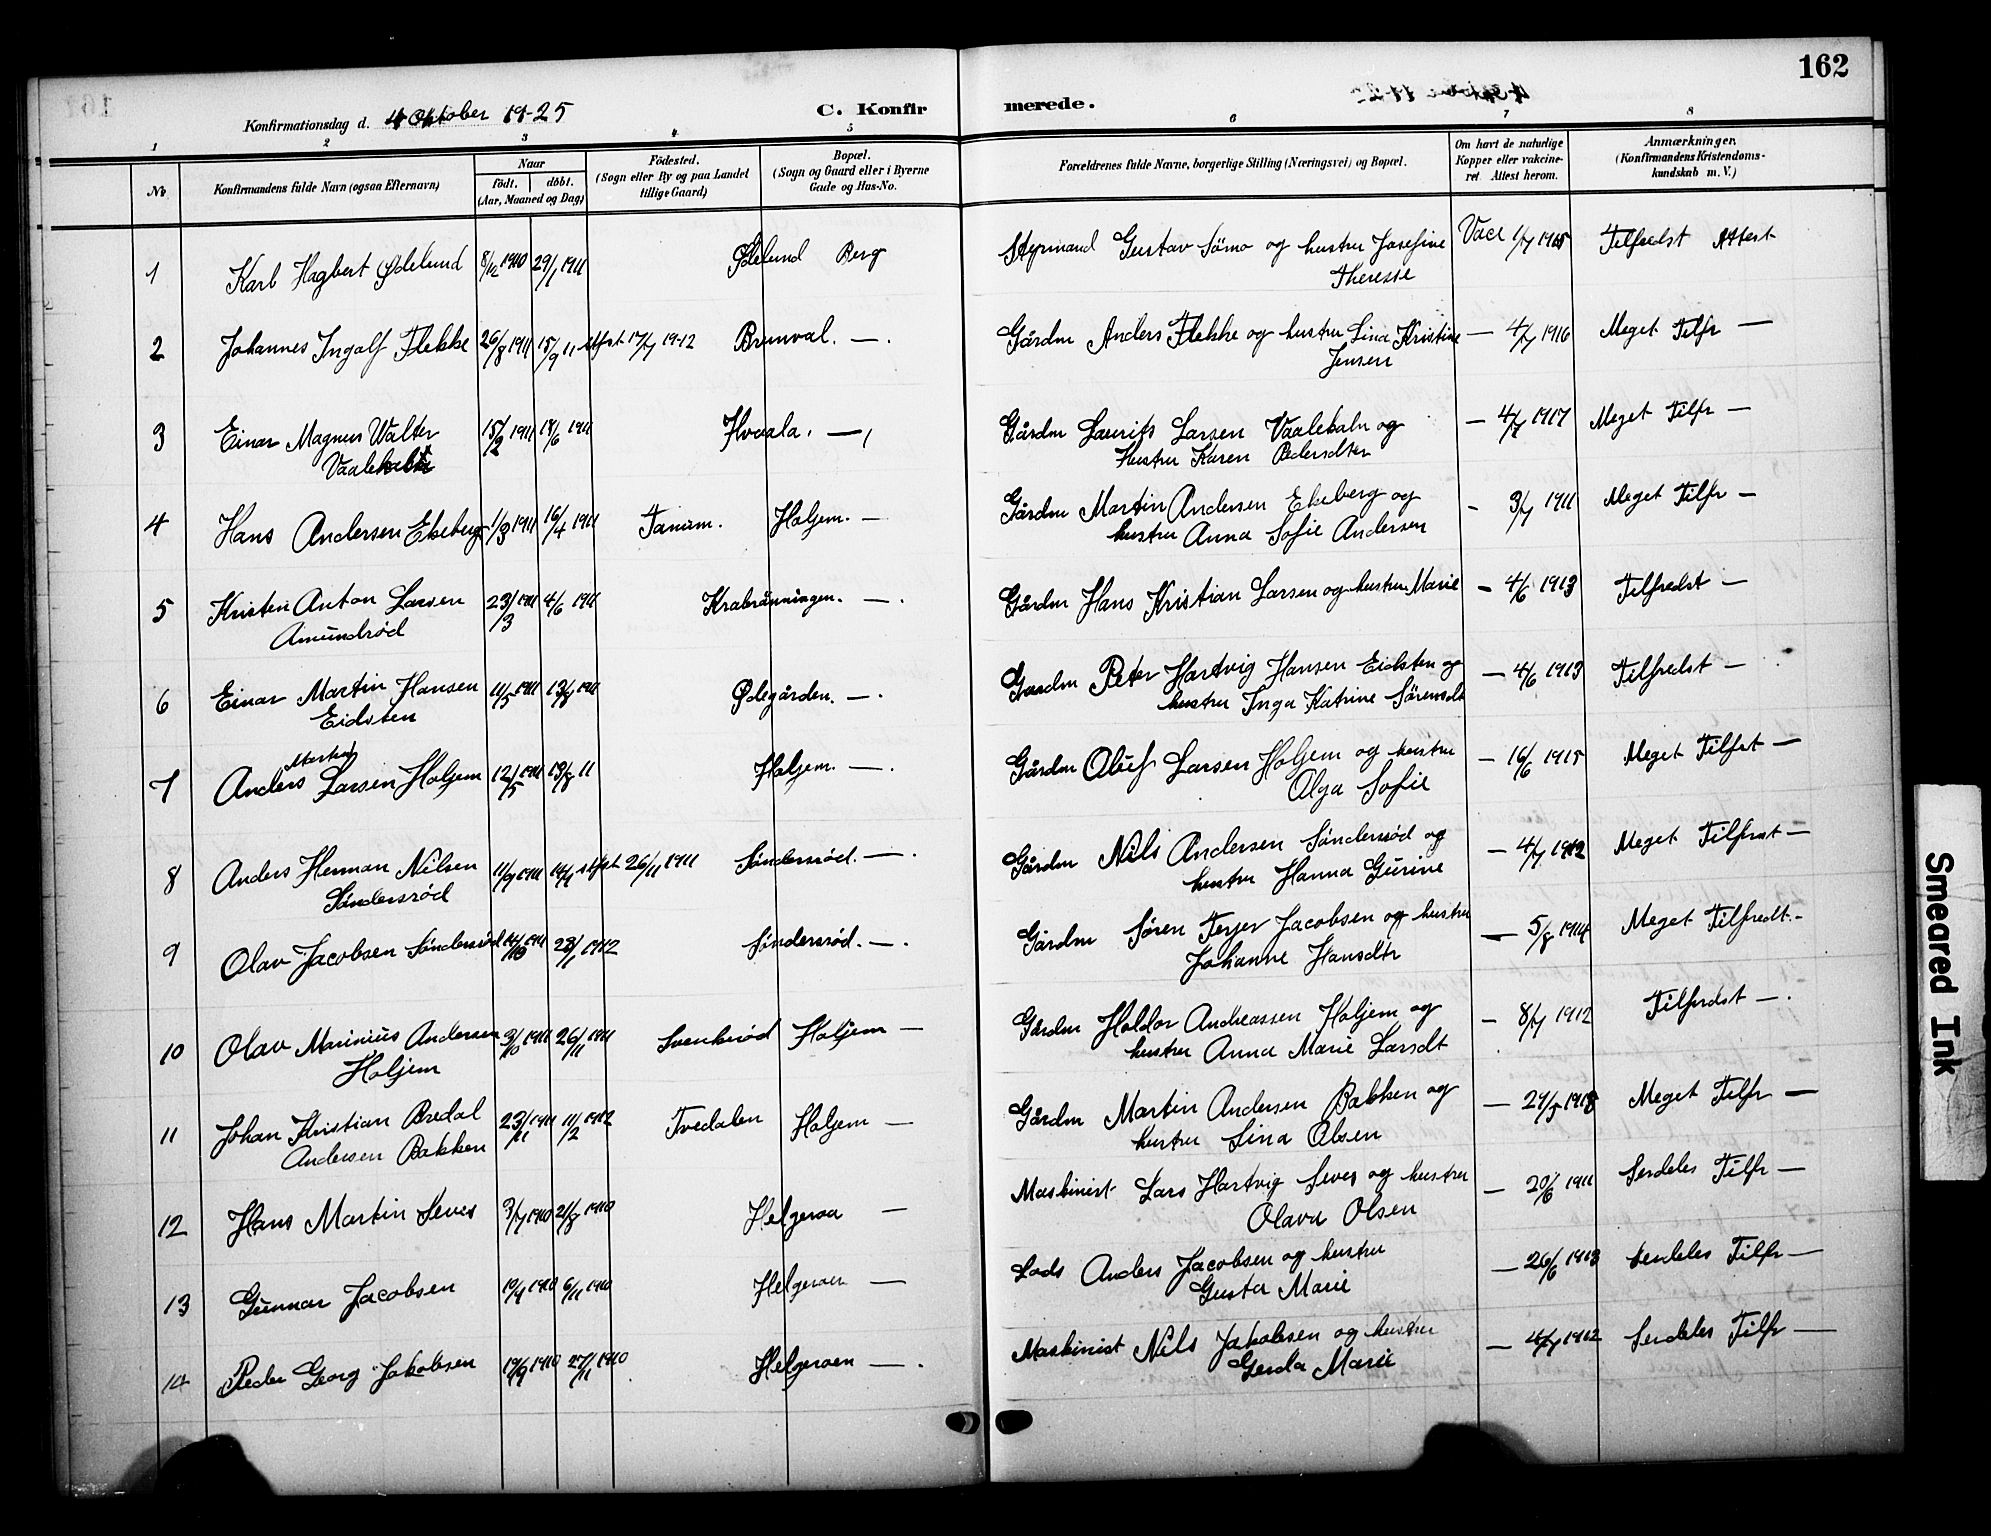 162
Konfirmationsdag d. 4 Oktober 1925
C. Konfirmerede.
1 2 3 4 5 6 7 8
No.
Konfirmandens fulde Navn (ogsaa Efternavn)
Naar
født. døbt.
(Aar, Maaned og Dag)
Fødested.
(Sogn eller By og paa Landet
tillige Gaard)
Bopæl.
(Sogn og Gaard eller i Byerne
Gade og Hus-No.
Forældrenes fulde Navne, borgerlige Stilling (Næringsvei) og Bopæl.
Om havt de naturlige
Kopper eller vakcine-
ret. Attest herom.
Anmærkninger.
(Konfirmandens Kristendoms-
kundskab m. V.)
1 Karl Hagbert Ødelund 8/12 1910 29/1 1911 Ødelund Berg Styrmand Gustav Sømo og hustru Josefine Vacc 1/7 1915 Tilfredst Attest
Theresie
2 Johannes Ingolf Flekke 26/8 1911 15/9 11 attest 17/7 1912 Brunval. — . Gårdm Anders Flekke og hustru Lina Kristine — 4/7 1916 Meget Tilfr —
Jensen
3 Einar Magnus Walter 15/2 1911 18/6 1911 Hvaala. — , Gårdm Laurits Larsen Vaalebaln og — 4/7 1917 Meget Tilfr —
Hustru Karen Pedersdtr
4 Hans Andersen Ekeberg 1/3 1911 16/4 1911 Tanum. Holjem. — Gårdm Martin Andersen Ekeberg og - 3/7 1911 Meget Tilfr —
hustru Anna Sofie Andersen
5 Kristen Anton Larsen 23/3 1911 4/6 1911 Krabrønningen. — . Gårdm Hans Kristian Larsen og hustru Marie — 4/6 1913 Tilfredst —
Amundrød
6 Einar Martin Hansen 11/5 1911 13/8 1911 Ødegården. — . Gaardm Peter Hartvig Hansen Eidsten og — 4/6 1913 Tilfredst —
Eidsten hustru Inga Katrine Sørensdt
7 Anders Larsen Holjem 12/5 1911 13/8 11 Holjem. — . Gårdm Oluf Larsen Holjem og hustru — 16/6 1915 Meget Tilfrst —
Olga Sofie
8 Anders Herman Nilsen 11/7 1911 attest 26/11 1911 Søndersrød. — . Gårdm Nils Andersen Søndersrød og — 4/7 1912 Meget Tilfrst —
Søndersrød hustru Hanna Gurine
9 Olav Jacobsen Søndersrød 14/10 1911 28/1 1912 Søndersrød. — . Gårdm Søren Terjer Jacobsen og hustru — 5/8 1914 Meget Tilfredt. -
Johanne Hansdtr
10 Olav Marinius Andersen 3/10 1911 26/11 1911 Svenkerød Holjem — Gårdm Holdor Andreassen Holjem og — 8/7 1912 Tilfredst — .
Holjem hustru Anna Marie Larsdt
11 Johan Kristian Bredal 23/11 1911 11/2 1912 Tvedalen Holjem — Gårdm Martin Andersen Bakken og — 1918 Meget Tilfr —
Andersen Bakken hustru Lina Olsen
12 Hans Martin Seves 3/7 1910 21/8 1910 Helgeroa — Maskinist Lars Hartvig Seves og hustru — 20/6 1911 Serdeles Tilfr —
Olava Olsen
13 Gunnar Jacobsen 1910 6/11 1910 Helgeroen — Lods Anders Jacobsen og hustru — 26/6 1913 Serdeles Tilfr —
Gusta Marie
14 Peder Georg Jakobsen 19/9 1910 27/11 1910 Helgeroen — . Maskinist Nils Jakobsen og hustru — 4/7 1912 Serdeles Tilfr —
Gerda Marie
Smeared Ink